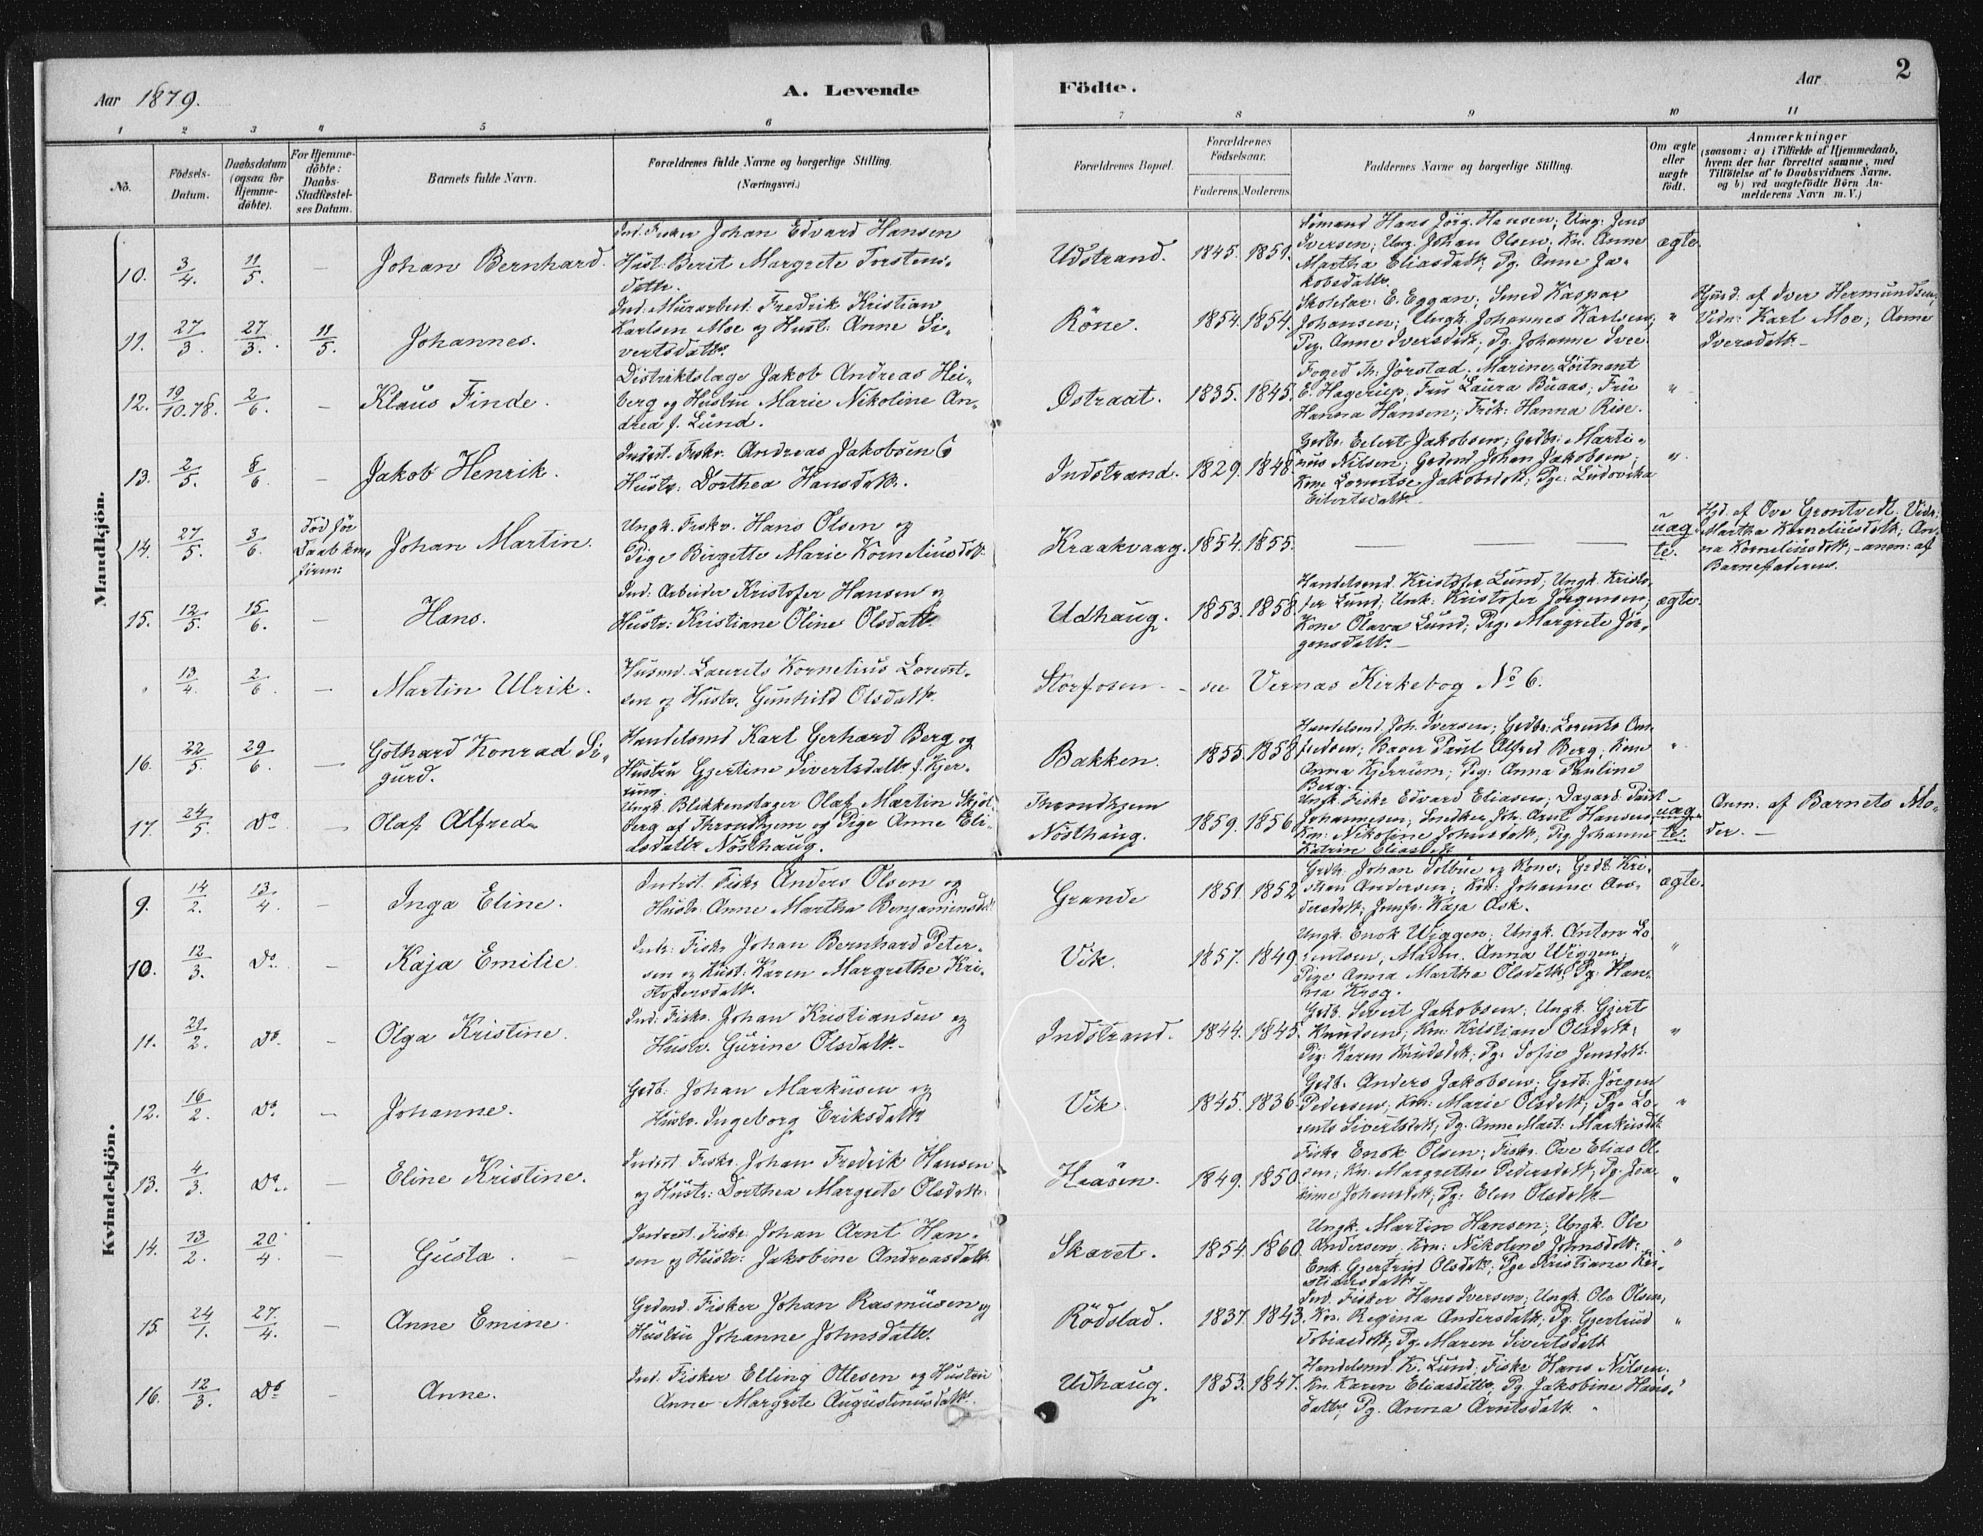 Aar 1879.
A. Levende Födte.
Aar
2
1 2 3 4 5 6 7 8 9 10 11
No.
Födsels-Datum.
Daabsdatum (ogsaa for Hjemme-döbte).
For Hjemme-döbte: Daabs-Stadfæstel-ses Datum.
Barnets fulde Navn.
Forældrenes fulde Navne og borgerlige Stilling. (Næringsvei.)
Forældrenes Bopæl.
Forældrenes Födselsaar.
Faderens. Moderens.
Faddernes Navne og borgerlige Stilling.
Om ægte eller uægte födt.
Anmærkninger (saasom: a) i Tilfælde af Hjemmedaab, hvem der har forrettet samme, med Tilföielse af to Daabsvidners Navne. og b) ved uægtefödte Börn An-melderens Navn m.V.)
Mandkjön.
10. 3/4. 11/5. — Johan Bernhard.
Ind. Fisker Johan Edvard Hansen
Hust. Berit Margrete Torstens-
dattr.
Udstrand. 1845. 1851.
Sömand Hans Jörg. Hansen; Ung. Jens
Iversen; Ung. Johan Olsen; Kn. Anne
Martha Eliasdatt; Pg. Anne Ja-
kobsdattr.
ægte.
11. 27/3. 27/3. 11/5. Johannes.
Ind. Murarbeid. Fredrik Kristian
Karlsen Moe og Hustr: Anne Si-
vertsdattr.
Röne. 1854. 1854.
Skolelær. E. Eggan; Smed Kaspar
Johansen; Ungk. Johannes Karlsen;
Pig. Anne Iversdatt; Pg. Johanne Ive
"
Hjmd: af Iver Hermundsen;
Vidn: Karl Moe; Anne
Iversdatt.—
12. 19/10.78. 2/6. — Klaus Finde.
Distriktslæge Jakob Andreas Hei-
berg og Hustru Marie Nikoline An-
drea f. Lund.
Østraat. 1835. 1845.
Foged M. Jörstad. Marine Löitnant
E. Hagerup, Fru Laura Buaas; Fru
Hanna Hansen; Frök: Hanna Rise.
"
13. 2/5. 8/6. — Jakob Henrik.
Inderst. Fiskr. Andreas Jakobsen &
Hustr: Dorthea Hansdatt.
Indstrand. 1829. 1848.
Grdbr. Eilert Jakobsen; Grdbr: Marti-
nus Nilsen; Grdmd Johan Jakobsen;
Kone Lorentse Jakobsdatt; Pge: Ludovika
Eilertsdatt.
"
14. 27/5. 3/6. Död för Daab kon-firm: Johan Martin.
Ungk. Fiskr. Hans Olsen og
Pige Birgitte Marie Korneliusdatt
Kraakvaag. 1854. 1855. — — —
uæg-te.
Hjd. af Ove Grontvedt. Vidn:
Martha Korneliusdatt; An-
na Korneliusdatt, — anm: af
Barnefaderen.
15. 12/5. 15/6. — Hans.
Ind: Arbeider Kristofer Hansen og
Hustr: Kristiane Oline Olsdatt.
Udhaug. 1853. 1858.
Handelsmd. Kristofer Lund; Ungk. Kristo-
fer Lund; Unk: Kristofer Jörgensen;
Kone Olava Lund; Pig. Margrete Jör-
gensdatt.—
ægte.
" 13/4. 2/6. — Martin Ulrik.
Husmd. Laurits Kornelius Lorent-
sen og Hustr. Gunhild Olsdatt.
Storfosen — see Vernæs Kirkebog No 6.
16. 22/5. 29/6. — Gothard Konrad Si-
gurd.
Handelsmd Karl Gerhard Berg og
Hustru Gjertine Sivertsdattr f. Kjer-
ring.
Bakken. 1855. 1858
Handelsmd Joh. Iversen; Grdbr: Lorents An-
fredsen; Bager Paul Alfred Berg; Kone
Anna Kjerrum; Pig: Anna Pauline
Berg.
"
17. 24/5. Do. — Olaf Alfred.
Ungk. Blikkenslager Olaf Martin Skjöl-
berg af Throndhjem og Pige Anne Eli-
asdattr Nösthaug.
Throndhjem
Nösthaug. 1859. 1856.
Ungk. Fiskr Edvard Eliasen; Dagard. Paul
Johannesen; Snedker Joh. Arnt Hansen;
Kn: Nikoline Johnsdatt; Pig. Johanne
Katrine Eliasdatt.
uæg-te.
Anm. af Barnets Mo-
der. —
Kvindekjön.
9. 14/2. 13/4. — Inga Eline.
Inderst. Fiskr Anders Olsen og
Hustr. Anne Martha Benjaminsdatt
Grande 1851. 1852
Grdb. Johan Solbue og Kone; Grdb. Kri-
stian Andersen; Kn: Johanne An-
dersdatt; Jomfr. Kaja Ask.
ægte.
10. 12/3. Do. — Kaja Emilie
Indr: Fiskr Johan Bernhard Peter-
sen og Hust: Karen Margrethe Kri-
stoffersdatt.
Vik. 1857. 1849.
Ungk. Enok Wiggen; Ungk. Anton Lo-
rentsen, Madm. Anna Wiggen;
Pige Anna Martha Olsdatt; Pg. Han-
na Krog.
"
11. 21/2. Do. — Olga Kristine.
Ind: Fiskr. Johan Kristiansen og
Hustr. Gurine Olsdatt.
Indstrand. 1844. 1845.
Grdb. Sivert Jakobsen; Ungk. Gjert
Knudsen; Kn: Kristiane Olsdatt;
Pig: Karen Knudsdatt; Pg. Sofie Jensdatt.
"
12. 16/2. Do. — Johanne.
Grdb: Johan Markusen og
Hustr. Ingeborg Eriksdatt
Vik. 1845. 1836.
Grdb. Anders Jakobsen; Grdb: Jörgen
Pedersen; Kn: Marie Olsdatt; Pge Lo-
rents Sivertsdatt; Pg. Anne Mart: Markusdatt.
"
13. 4/3. Do. — Eline Kristine.
Inderst Fiskr. Johan Fredrik Hansen
og Hustr: Dorthea Margrete Olsdatt.
Haasen. 1849. 1850.
Fiskr Enok Olsen; Fiskr. Ove Elias Ol-
sen; Kn. Margrethe Pedersdatt; Pg. Joa-
kime Johansdatt; Pg: Elen Olsdatt.—
"
14. 13/2. 20/4. — Gusta. —
Inderst. Fiskr. Johan Arnt Han-
sen og Hustr: Jakobine Andreasdatt.
Skaret. 1854. 1860.
Ungk. Martin Hansen; Ungk. Ole
Andersen; Kn: Nikoline Johnsdatt;
Enk. Gjertrud Olsdatt; Pge Kristiane Kri-
stiansdatt.
"
15. 24/1. 27/4. — Anne Emine.
Grdmd. Fisker Johan Rasmusen og
Hustru Johanne Johnsdattr.
Rödstad. 1837. 1843.
Ind. Fisker Hans Iversen; Ungk. Ole Olsen;
Kn. Regina Andersdatt; Pg. Gjertrud
Tobiasdatt; Pg. Maren Sivertsdatt
"
16. 12/3. Do — Anne.
Ind. Fisker Elling Ottesen og Hustru
Anne Margrete Augustinusdatt.
Udhaug. 1853. 1847.
Handelsmd. K. Lund; Fiskr Hans Nilsen.
Kn. Karen Eliasdattr, Pg. Jakobine Hans-
datt, Pg. Anna Arntsdatt.
"